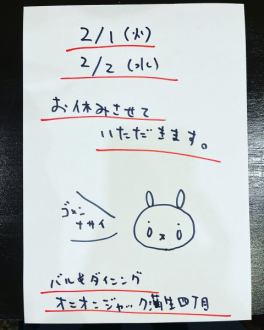 2/1 (火)
2/2 (水)
お休みさせて
いただきます。
ゴメン
ナサイ
バル&ダイニング
オニオンジャック蒲生四丁目